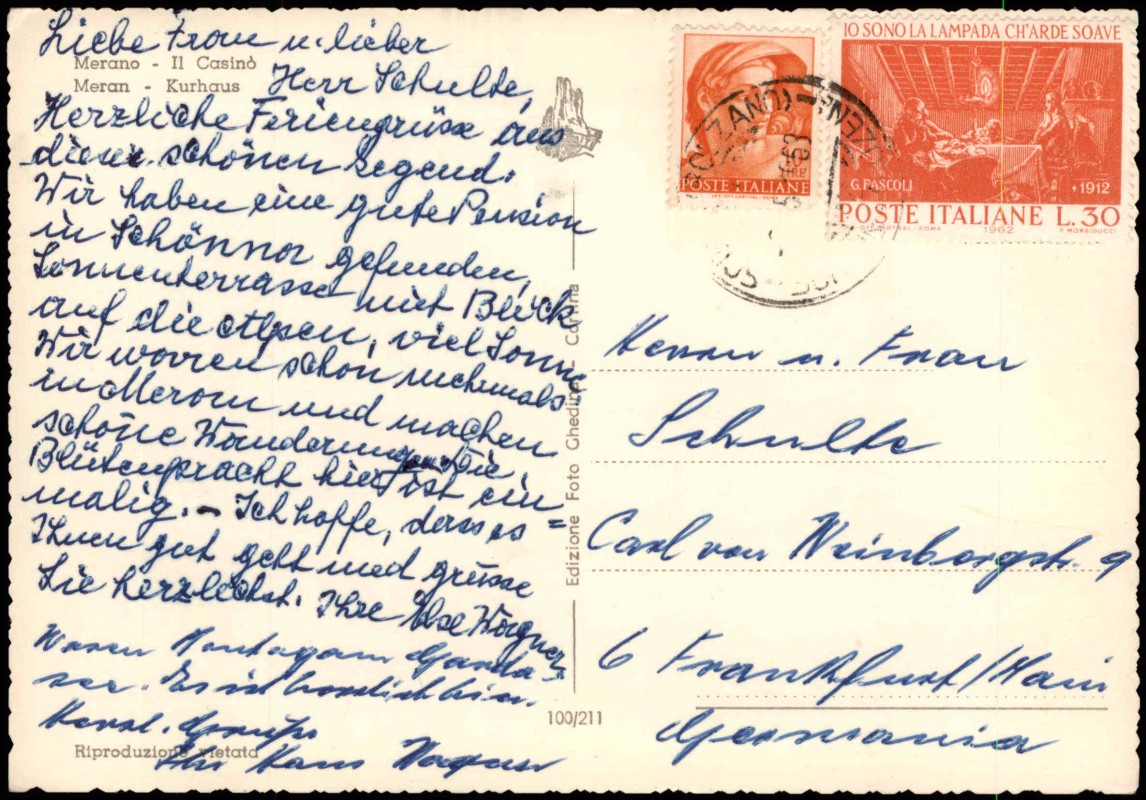 Liebe Frau u. lieber
Merano - Il Casinò
Meran - Kurhaus
Herr Schulte,
Herzliche Feriengrüsse aus
dieser schönen Gegend.
Wir haben eine gute Pension
in Schönna gefunden,
Sonnenterrasse mit Blick
auf die Alpen, viel Sonne
Wir waren schon mehrmals
in Meran und machen
schöne Wanderungen. Die
Blütenpracht hier ist ein=
malig. - Ich hoffe, dass es
Ihnen gut geht und grüsse
Sie herzlichst. Ihre Else Wagner
Waren Montag am Garda-
see. Es ist herrlich hier.
Herzl. Grüße
Ihr Hans Wagner
Riproduzione vietata
Edizione Foto Ghedina - Cortina
100/211
POSTE ITALIANE
IO SONO LA LAMPADA CH'ARDE SOAVE
G. PASCOLI
+1912
POSTE ITALIANE L.30
1962
Herrn u. Frau
Schulte
Carl von Weinbergstr. 9
6 Frankfurt/Main
Germania